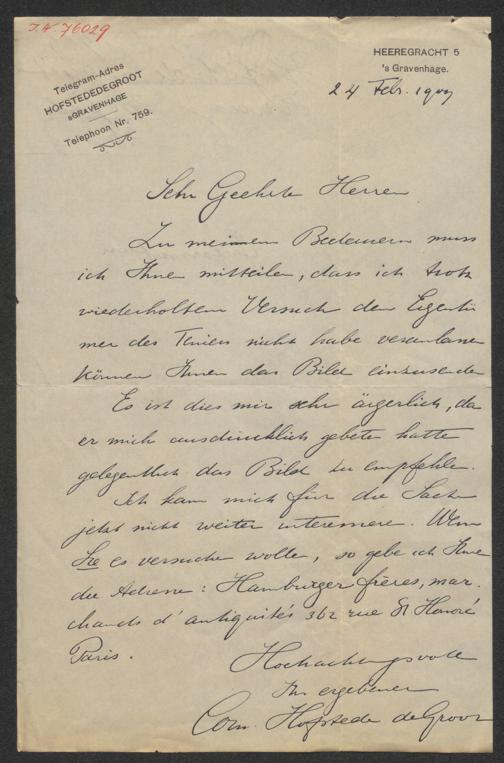 J.N. 76029
Telegram-Adres
HOFSTEDEDEGROOT
sGRAVENHAGE
Telephoon Nr. 759.
HEEREGRACHT 5
's Gravenhage.
24 Febr. 1907
Sehr Geehrte Herren
Zu meinem Bedauern muss
ich Ihnen mitteilen, dass ich trotz
wiederholtem Versuch den Eigentü
mer des Teniers nicht habe veranlassen
können Ihnen das Bild einzusenden
Es ist dies mir sehr ärgerlich, da
er mich ausdrücklich gebeten hatte
gelegentlich das Bild zu empfehlen.
Ich kann mich für die Sache
jetzt nicht weiter interessiere. Wenn
Sie es versuchen wollen, so gebe ich Ihnen
die Adresse: Hamburger frères, mar-
chands d'antiquités 362 rue St Honoré
Paris.
Hochachtungsvoll
Ihr ergebener
Corn. Hofstede de Groot